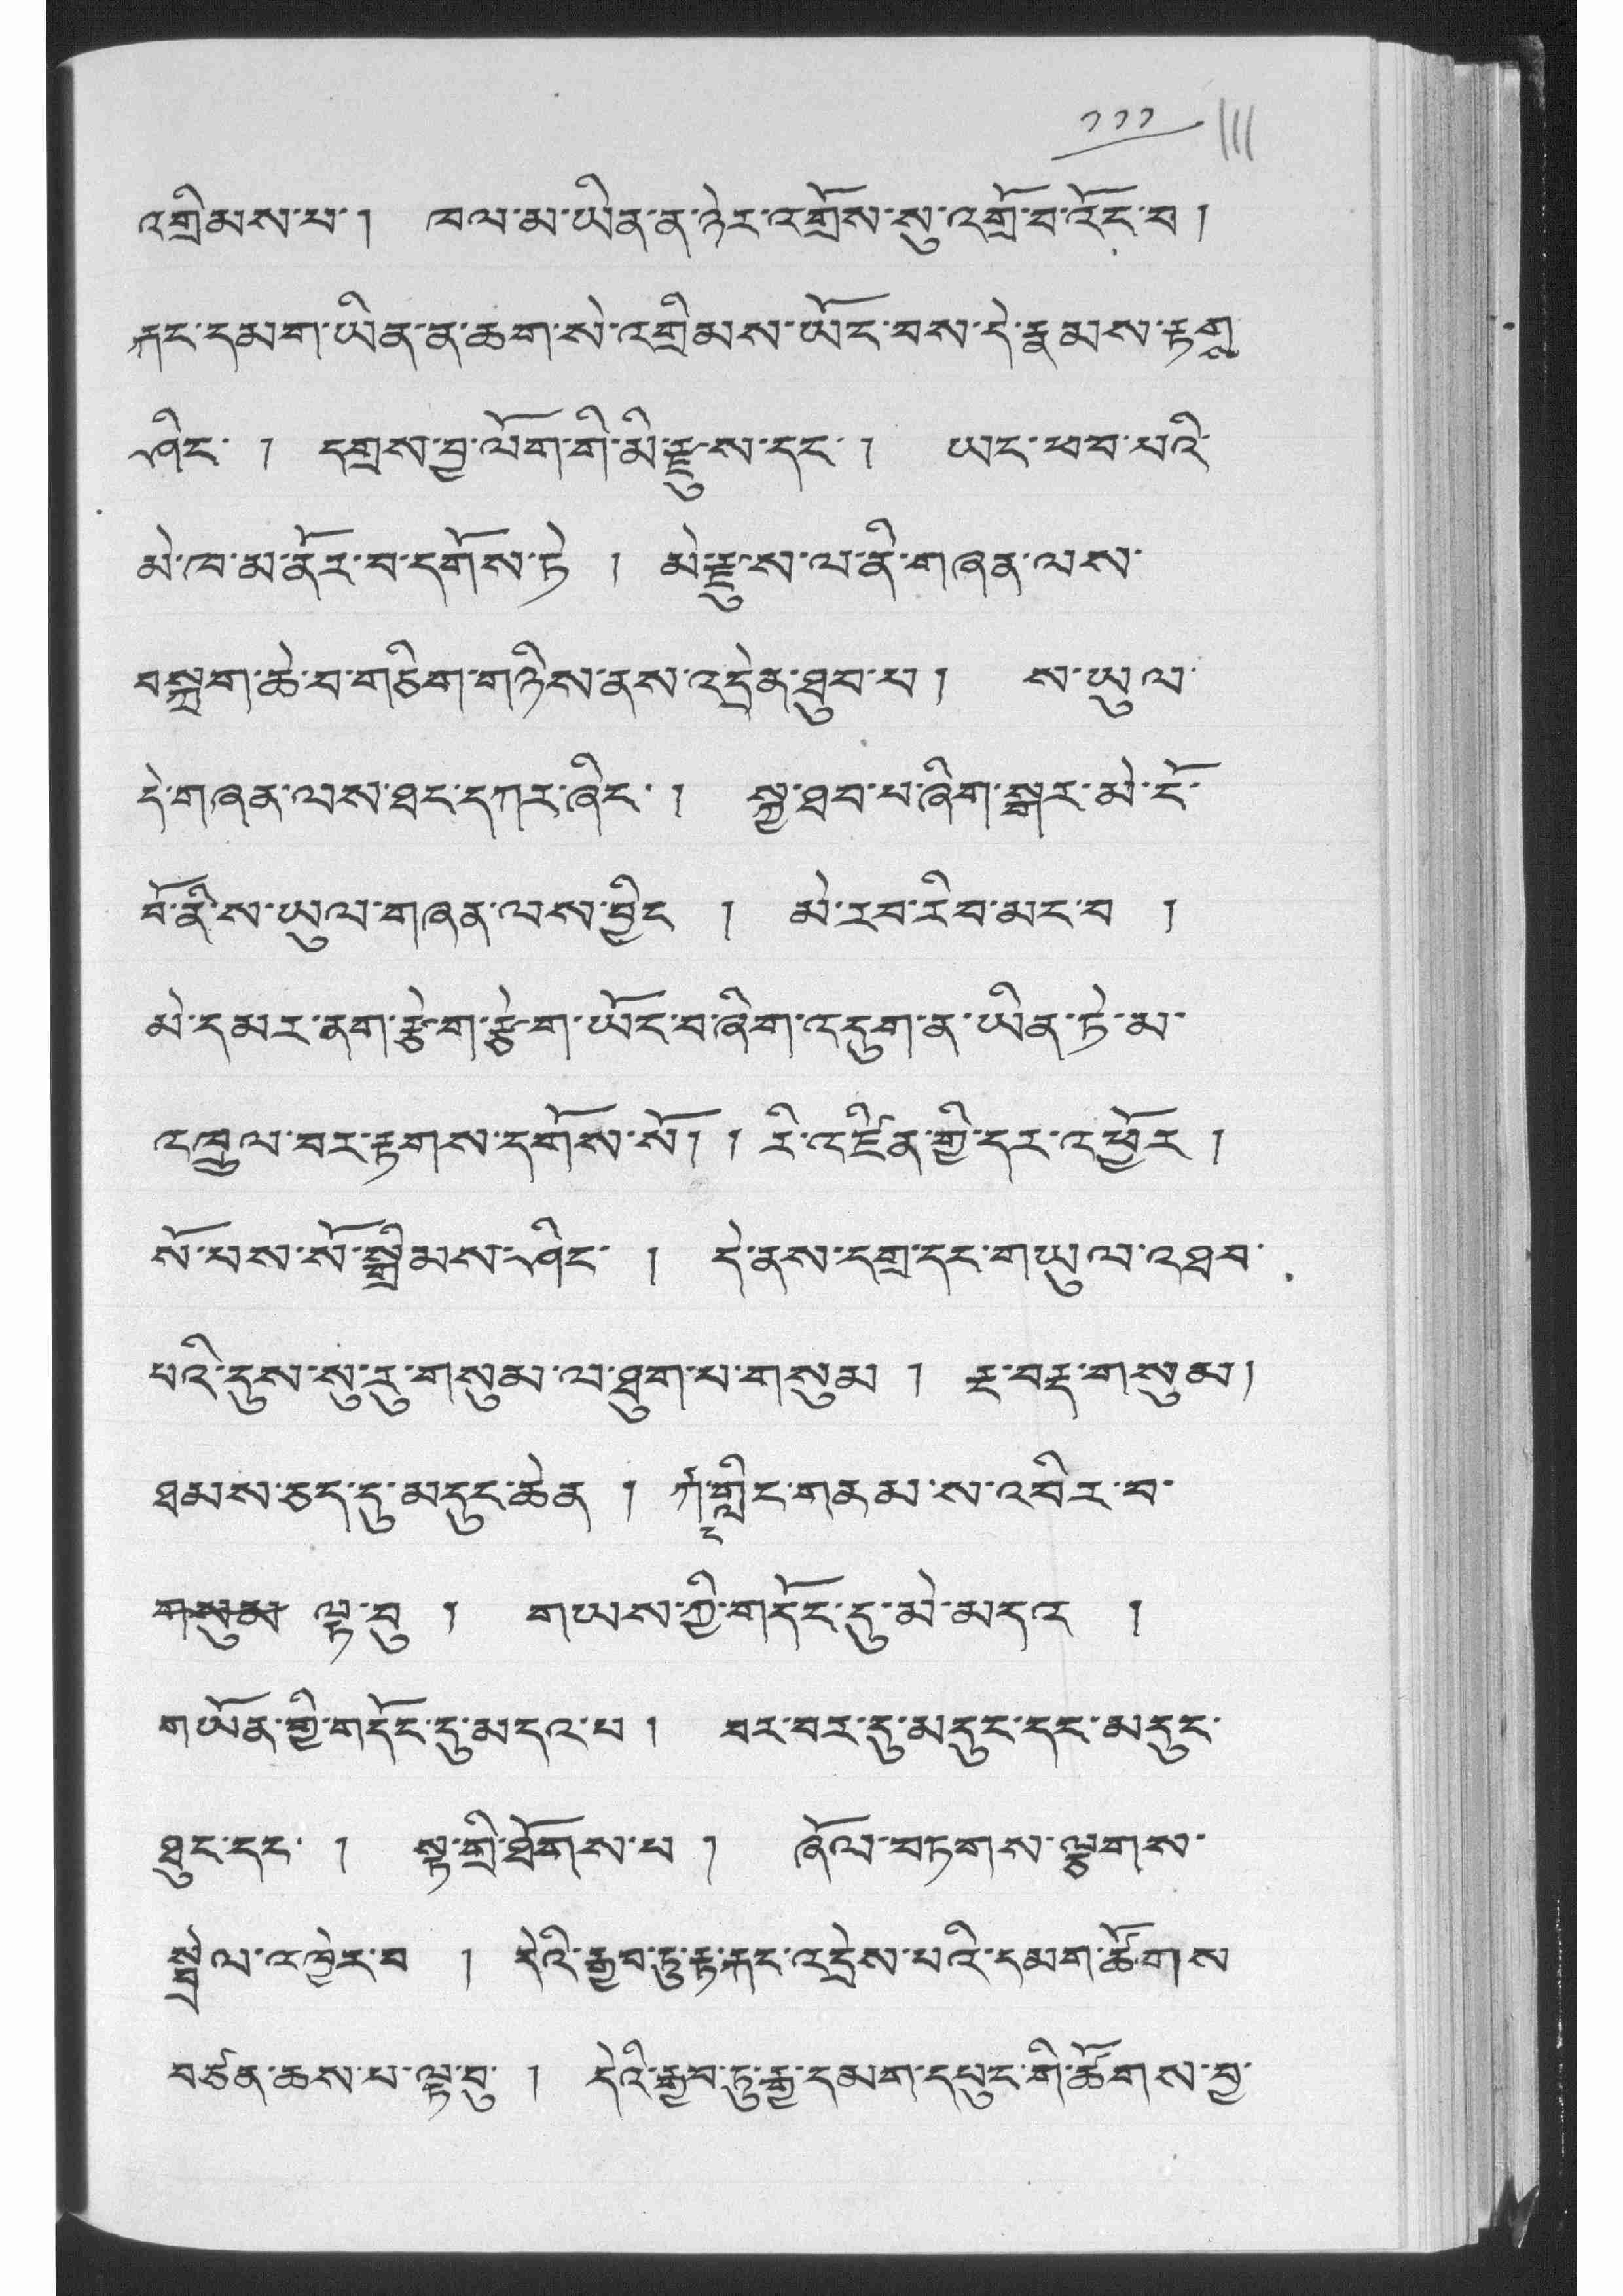 ༡༡༡ 111
འགྲིམས་པ་། ཁལ་མ་ཡིན་ན་ཉེར་འགྲོས་སུ་འགྲོ་བ་འོང་བ།
རྐང་དམག་ཡིན་ན་ཆག་སེ་འགྲིམས་ཡོང་བས་དེ་རྣམས་རྟགླ
ཤིང་ ། དགྲས་བྱ་ལོག་གི་མི་རྫུས་དང་ ། ཡང་ཕབ་པའི་
མེ་ཁ་མ་ནོར་བ་དགོས་ཏེ ། མེ་རྫུས་ལ་ནི་གཞན་ལས་
བསྐྲག་ཆེ་བ་གཅིག་གཉིས་ནས་འདྲེན་ཐུབ་པ། ས་ཡུལ་
དེ་གཞན་ལས་ཐང་དཀར་ཞིང་ ། སྐྱ་ཐབ་པ་ཞིག་སྒར་མེ་ངོ་
བོ་ནི་ས་ཡུལ་གཞན་ལས་བྱིང ། མེ་རབ་རིབ་མང་བ །
མེ་དམར་ནག་རྩེག་རྩེག་ཡོང་བ་ཞིག་འདུག་ན་ཡིན་ཏེ་མ་
འཁྲུལ་བར་རྟགས་དགོས་སོ། ། རི་འཛིན་གྱི་དར་འཕྱོར །
སོ་པས་སོ་སྒྲིམས་ཤིང་ ། དེ་ནས་དགྲ་དང་གཡུལ་འཐབ་
པའི་དུས་སུ་རུ་གསུམ་ལ་ཐུག་པ་གསུམ ། རྔ་བརྡ་གསུམ།
ཐམས་ཅད་དུ་མདུང་ཆེན ། རྐ་གླིང་གནམ་ས་འབིར་བ་
གསུམ ལྟ་བུ ། གཡས་ཀྱི་གདོང་དུ་མེ་མདའ །
གཡོན་གྱི་གདོང་དུ་མདའ་པ ། བར་བར་དུ་མདུང་དང་མདུང་
ཐུང་དང་ ། སྟ་གྲི་ཐོགས་པ ། ཞོལ་བཏགས་ལྕགས་
སྦྲེལ་འཁྱེར་བ ། དེའི་རྒྱབ་ཏུ་རྟ་རྐང་འདྲེས་པའི་དམག་ཚོགས
བཙན་ཆས་པ་ལྟ་བུ་ ། དེའི་རྒྱབ་ཏུ་རྒྱ་དམག་དཔུང་གི་ཚོགས་བྱ་